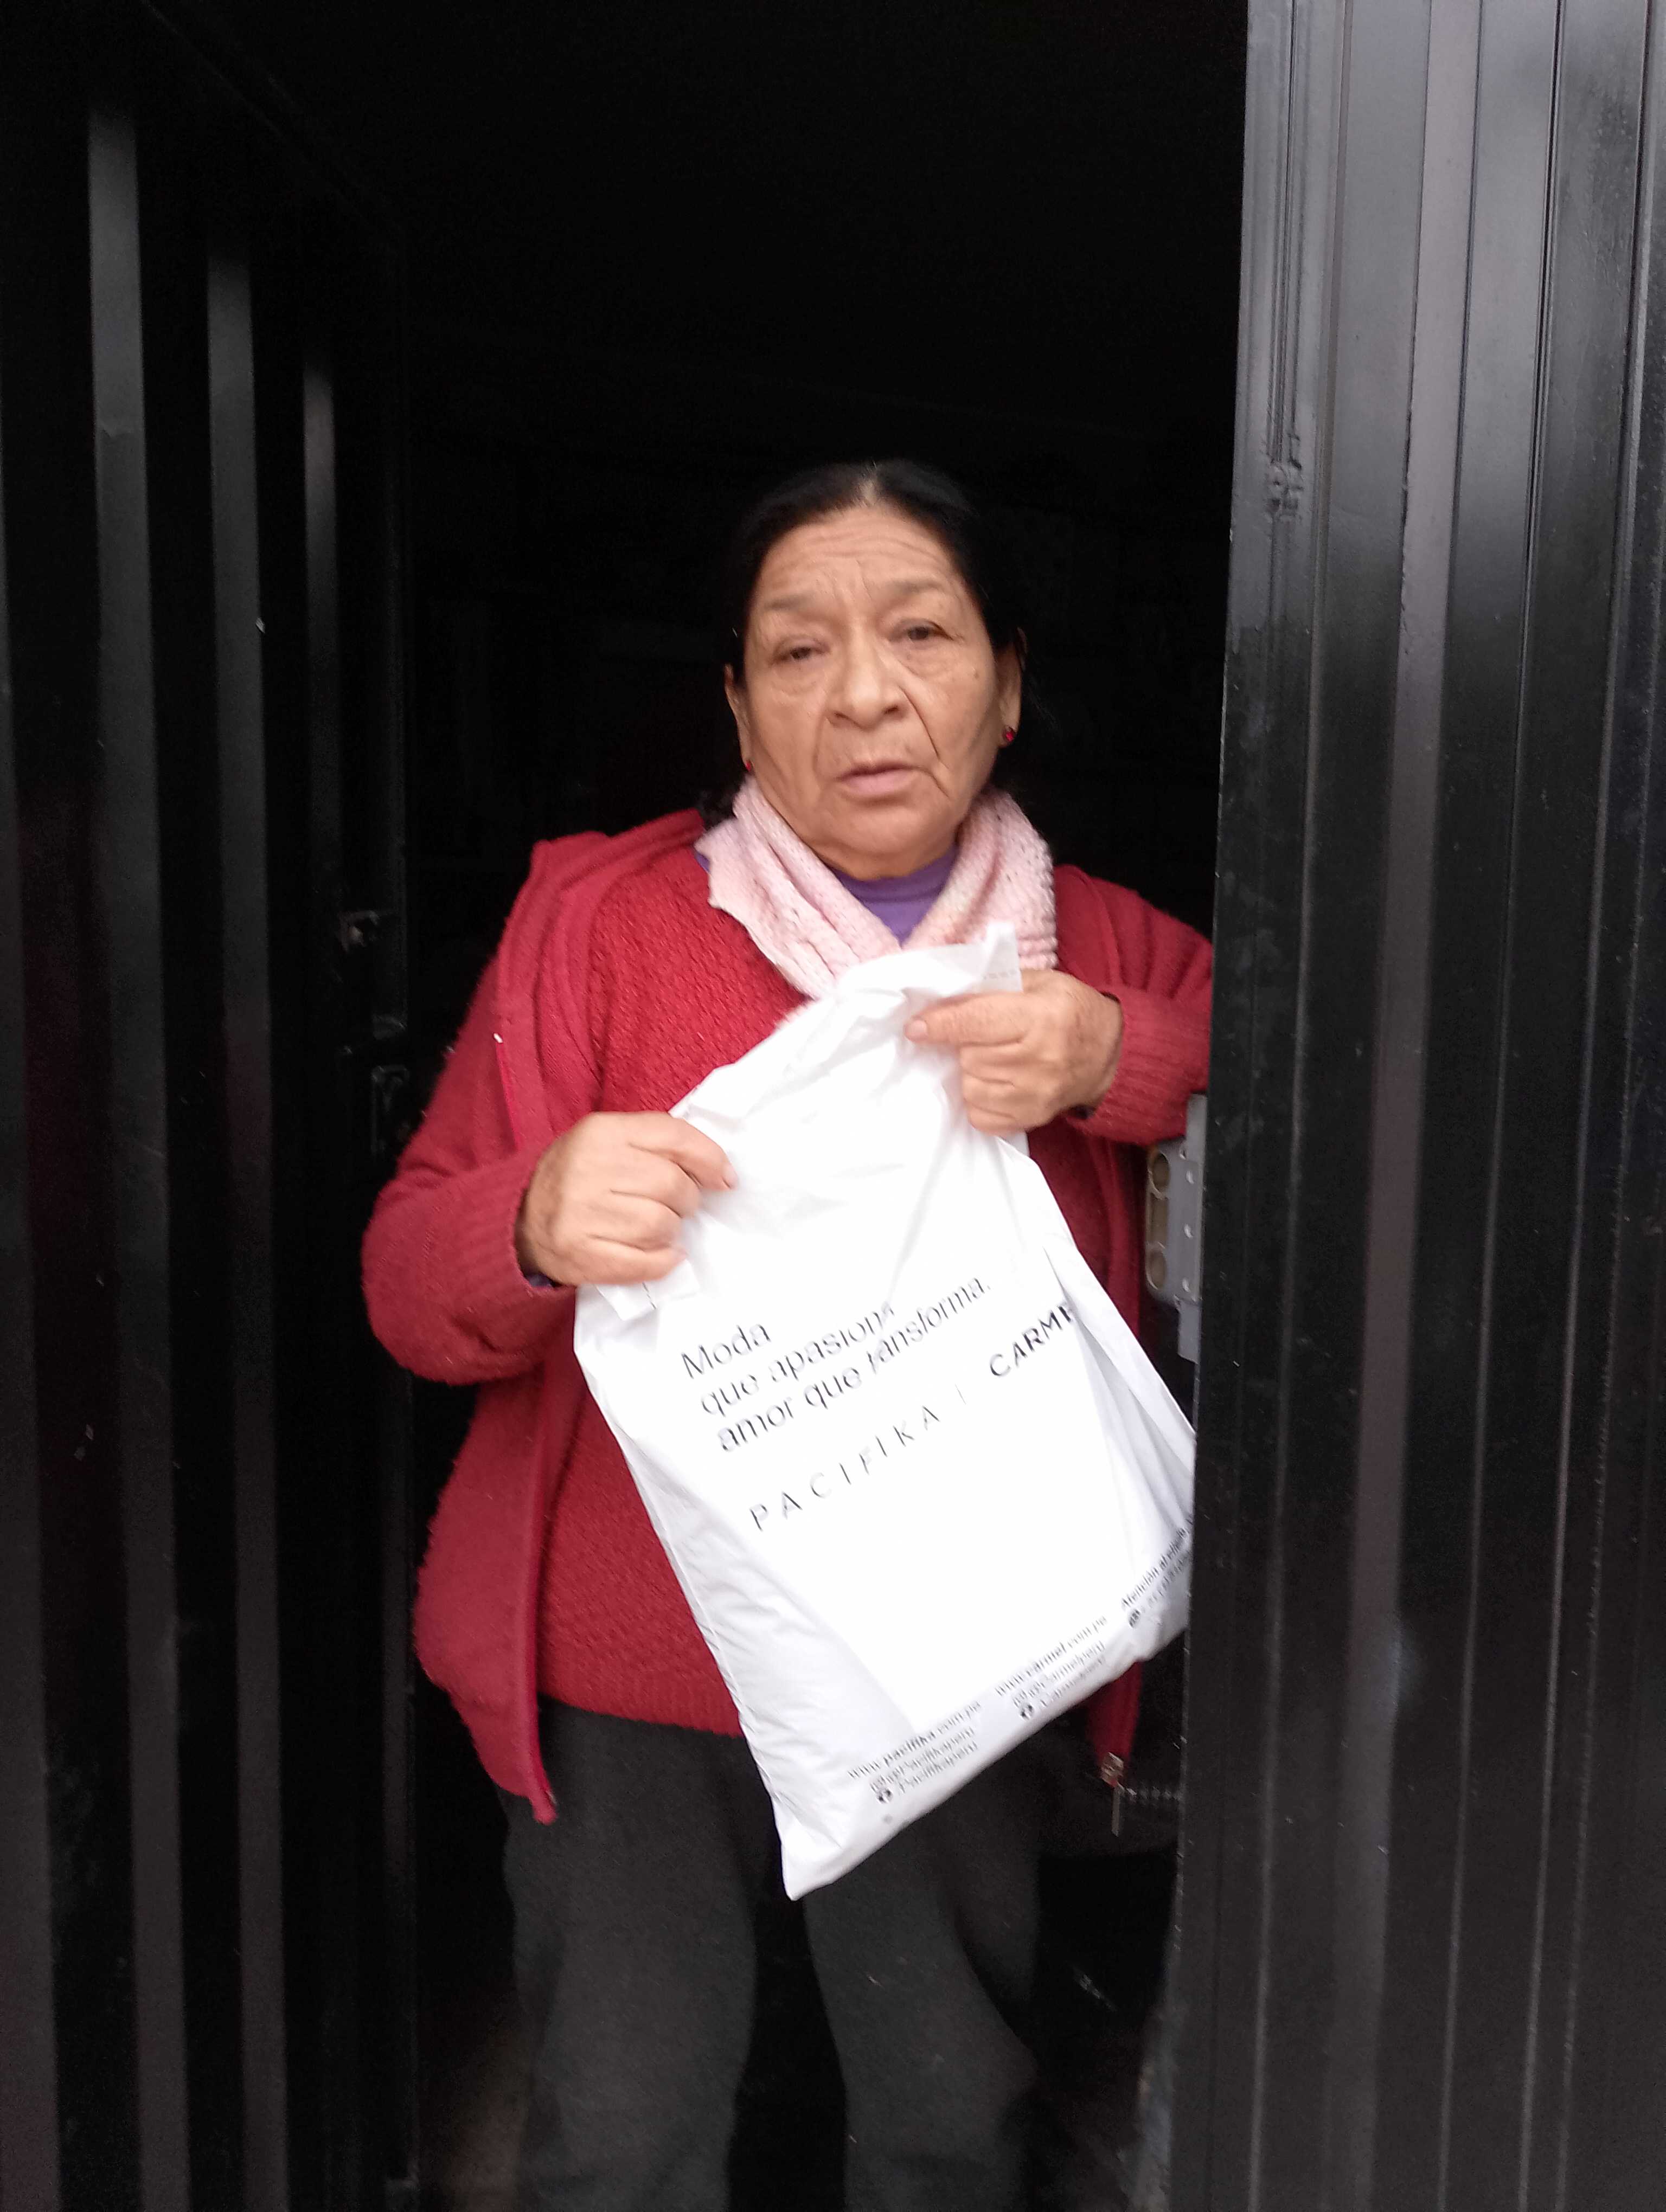 Moda
que apasiona
amor que transforma.
PACIFIKA | CARME
www.pacifika.com.pe
@Pacifikaperu
/Pacifikaperu
www.carmel.com.pe
@Carmelperu
Atención al